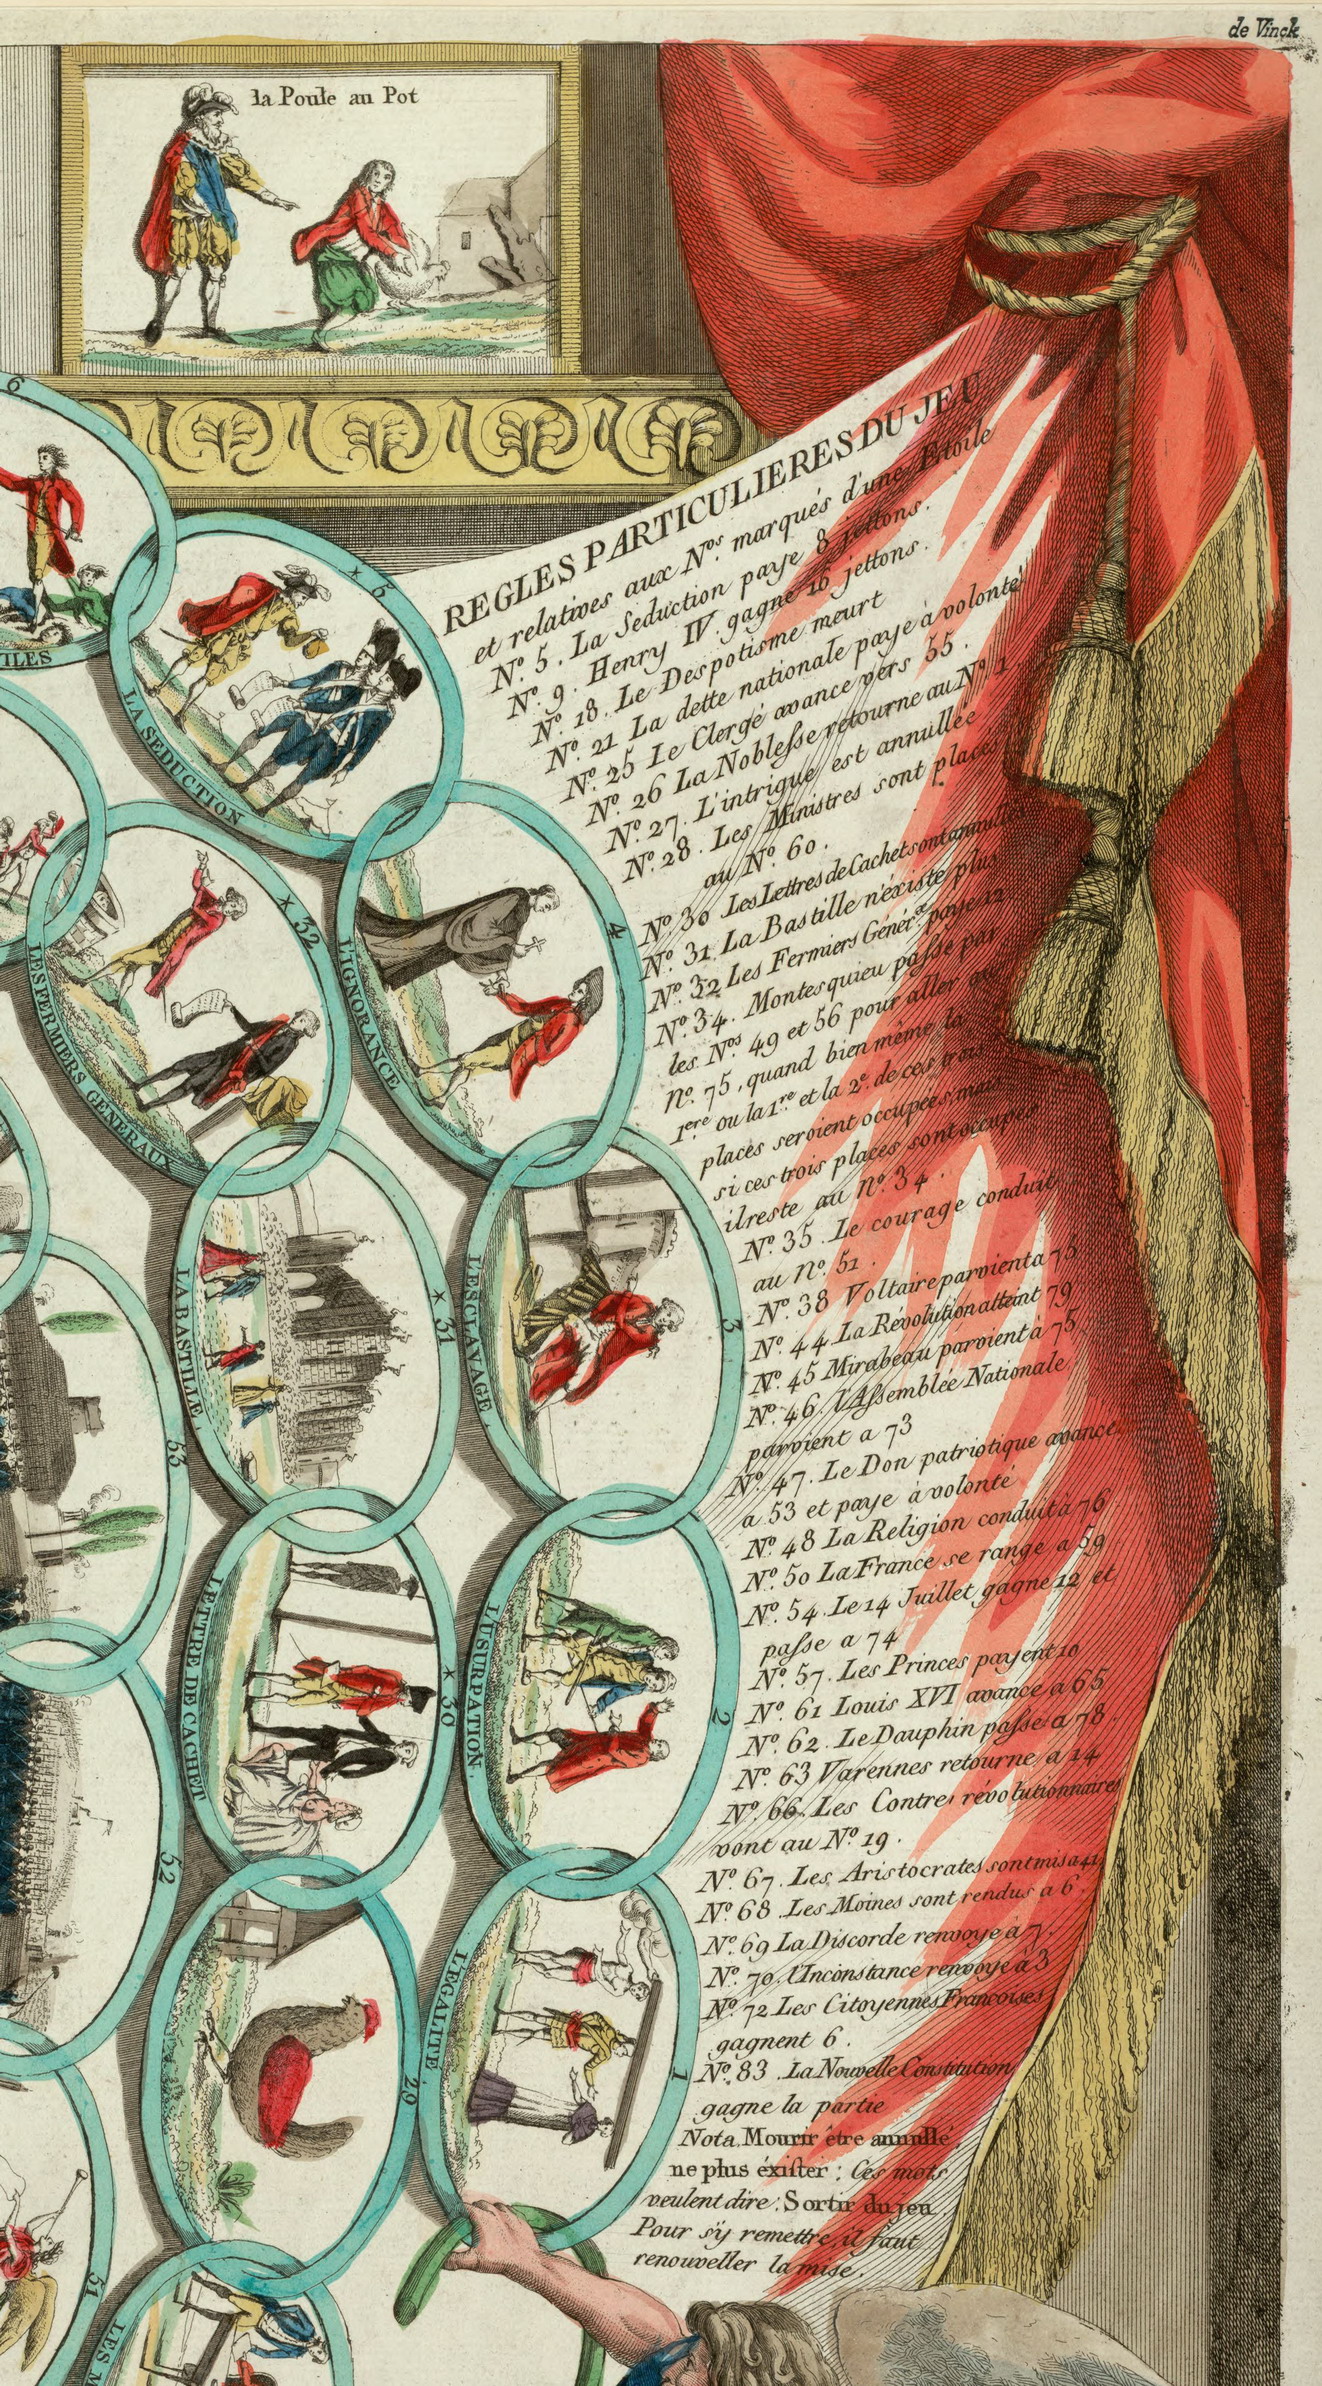 de Vinck
la Poule au Pot
REGLES PARTICULIERES DU JEU
et relatives aux Nos. marqués d'une Etoile
No. 5. La Seduction paye 8 jettons.
No. 9. Henry IV gagne 16 jettons.
No. 18. Le Despotisme meurt
No. 21 La dette nationale paye a volonté
No. 25 Le Clergé avance vers 55.
No. 26 La Noblesse retourne au No. 1
No. 27. L'intrigue est annullée
No. 28. Les Ministres sont placés
au No. 60.
No. 30 Les Lettres de Cachet sont
No. 31. La Bastille n'éxiste plus
No. 32 Les Fermiers Génér.x paye
No. 34. Montesquieu passe par
les Nos. 49 et 56 pour aller
no. 75, quand bien même la
1ere ou la 1re et la 2e. de ces trois
places seroient occupées mais
si ces trois places sont occupés
il reste au no. 34.
No. 35. Le courage conduit
au no. 51.
No. 38 Voltaire parvient a 75
No. 44 La Révolution atteint 79
No. 45 Mirabeau parvient à 75
No. 46 l'Assemblée Nationale
parvient a 73
No. 47. Le Don patriotique avance
a 53 et paye à volonté
No. 48 La Religion conduit à 76
No. 50 La France se range a 59
No. 54. Le 14 Juillet gagne 12 et
passe a 74
No. 57. Les Princes payent 10
No. 61 Louis XVI avance a 65
No. 62. Le Dauphin passe a 78
No. 63 Varennes retourne a 14
No. 66. Les Contre révolutionnaires
vont au No. 19.
No. 67. Les Aristocrates sont mis a 41
No. 68. Les Moines sont rendus a 6
No. 69 La Discorde renvoye à 7.
No. 70. l'Inconstance renvoye à 3
No. 72 Les Citoyennes Francoises
gagnent 6.
No. 83. La Nouvelle Constitution
gagne la partie
Nota. Mourir être annullé,
ne plus éxister: Ces mots
veulent dire: Sortir du jeu
Pour s'y remettre, il faut
renouveller la mise.
6
ILES
* 5
LA SEDUCTION
4
L'IGNORANCE
* 32
LES FERMIERS GENERAUX
3
L'ESCLAVAGE
* 31
LA BASTILLE
53
2
L'USURPATION.
* 30
LETTRE DE CACHET
52
1
L'EGALITE.
29
51
LES M